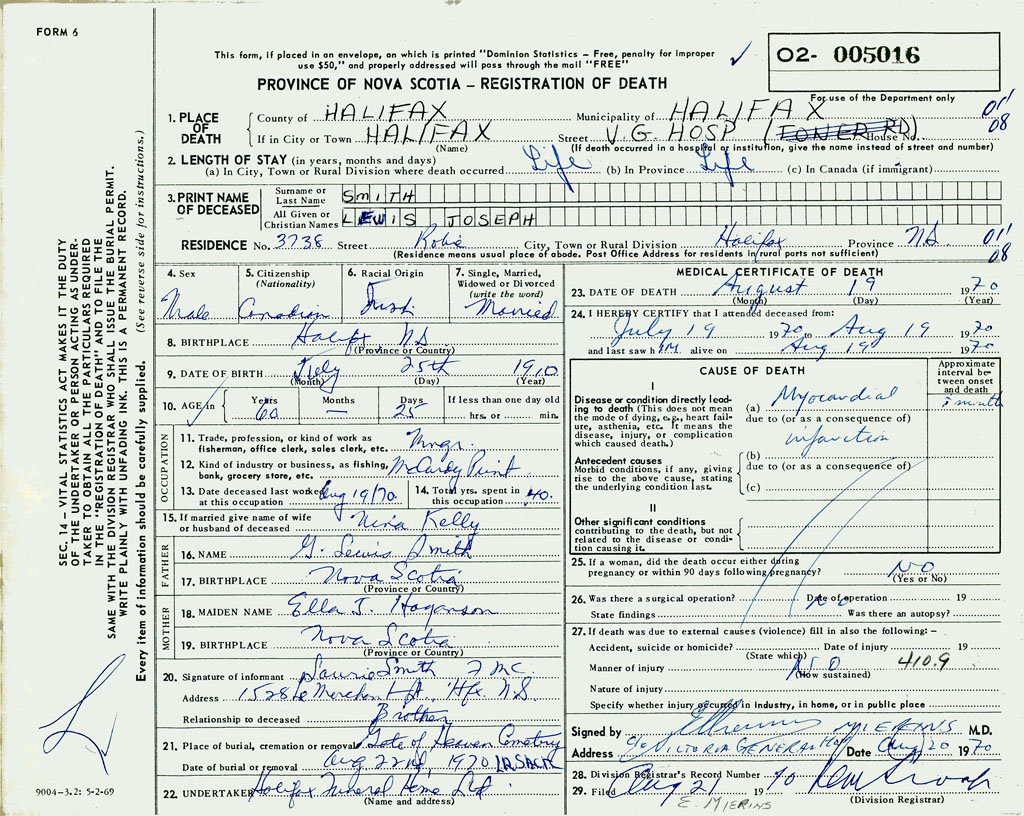 FORM 6
This form, if placed in an envelope, on which is printed "Dominion Statistics – Free, penalty for improper
use $50," and properly addressed will pass through the mail "FREE"
02- 005016
PROVINCE OF NOVA SCOTIA – REGISTRATION OF DEATH
For use of the Department only
1. PLACE OF DEATH
County of HALIFAX Municipality of HALIFAX 01
If in City or Town HALIFAX Street V.G HOSP (TONER RD) House No. 08
(Name) (If death occurred in a hospital or institution, give the name instead of street and number)
2. LENGTH OF STAY (in years, months and days)
(a) In City, Town or Rural Division where death occurred Life (b) In Province Life (c) In Canada (if immigrant)
3. PRINT NAME OF DECEASED
Surname or Last Name SMITH
All Given or Christian Names LEWIS JOSEPH
RESIDENCE No. 3738 Street Robie City, Town or Rural Division Halifax Province NS 01
(Residence means usual place of abode. Post Office Address for residents in rural parts not sufficient) 08
4. Sex
Male
5. Citizenship
(Nationality)
Canadian
6. Racial Origin
Irish
7. Single, Married,
Widowed or Divorced
(write the word)
Married
8. BIRTHPLACE Halifx NS
(Province or Country)
9. DATE OF BIRTH July 25th 1910
(Month) (Day) (Year)
10. AGE in Years Months Days If less than one day old
60 — 25 hrs. or min.
OCCUPATION
11. Trade, profession, or kind of work as
fisherman, office clerk, sales clerk, etc. Mngr.
12. Kind of industry or business, as fishing,
bank, grocery store, etc. McCurdy Print
13. Date deceased last worked
at this occupation Aug 19/70
14. Total yrs. spent in
this occupation 40
15. If married give name of wife
or husband of deceased Nina Kelly
FATHER
16. NAME G. Lewis Smith
17. BIRTHPLACE Nova Scotia
MOTHER
18. MAIDEN NAME Ella J. Haganson
19. BIRTHPLACE Nova Scotia
(Province or Country)
20. Signature of informant Laurie Smith
Address 1528 Le Merchant St, Hfx N.S.
Relationship to deceased Brother
21. Place of burial, cremation or removal Gate of Heaven Cemetery
Date of burial or removal Aug 22nd, 1970
22. UNDERTAKER Halifax Funeral Home Ltd
(Name and address)
MEDICAL CERTIFICATE OF DEATH
23. DATE OF DEATH August 19 1970
(Month) (Day) (Year)
24. I HEREBY CERTIFY that I attended deceased from:
July 19 1970 to Aug 19 1970
and last saw him alive on Aug 19 1970
CAUSE OF DEATH
Approximate
interval be-
tween onset
and death
I
Disease or condition directly lead-
ing to death (This does not mean
the mode of dying, e.g., heart fail-
ure, asthenia, etc. It means the
disease, injury, or complication
which caused death.)
(a) Myocardial
due to (or as a consequence of)
infarction
1 month
Antecedent causes
Morbid conditions, if any, giving
rise to the above cause, stating
the underlying condition last.
(b)
due to (or as a consequence of)
(c)
II
Other significant conditions
contributing to the death, but not
related to the disease or condi-
tion causing it.
25. If a woman, did the death occur either during
pregnancy or within 90 days following pregnancy? NO
(Yes or No)
26. Was there a surgical operation? Date of operation 19
State findings Was there an autopsy?
27. If death was due to external causes (violence) fill in also the following: –
Accident, suicide or homicide? Date of injury 19
(State which)
Manner of injury NO 410.9
(How sustained)
Nature of injury
Specify whether injury occurred in industry, in home, or in public place
Signed by MIERINS M.D.
Address c/o VICTORIA GENERAL HOSP Date Aug 20 1970
28. Division Registrar's Record Number
29. Filed Aug 21 1970
(Division Registrar)
E. MIERINS
SEC. 14 – VITAL STATISTICS ACT MAKES IT THE DUTY
OF THE UNDERTAKER OR PERSON ACTING AS UNDER-
TAKER TO OBTAIN ALL THE PARTICULARS REQUIRED
IN THE "REGISTRATION OF DEATH" AND TO FILE THE
SAME WITH THE DIVISION REGISTRAR WHO SHALL ISSUE THE BURIAL PERMIT.
WRITE PLAINLY WITH UNFADING INK. THIS IS A PERMANENT RECORD.
Every item of information should be carefully supplied. (See reverse side for instructions.)
9004-3.2: 5-2-69